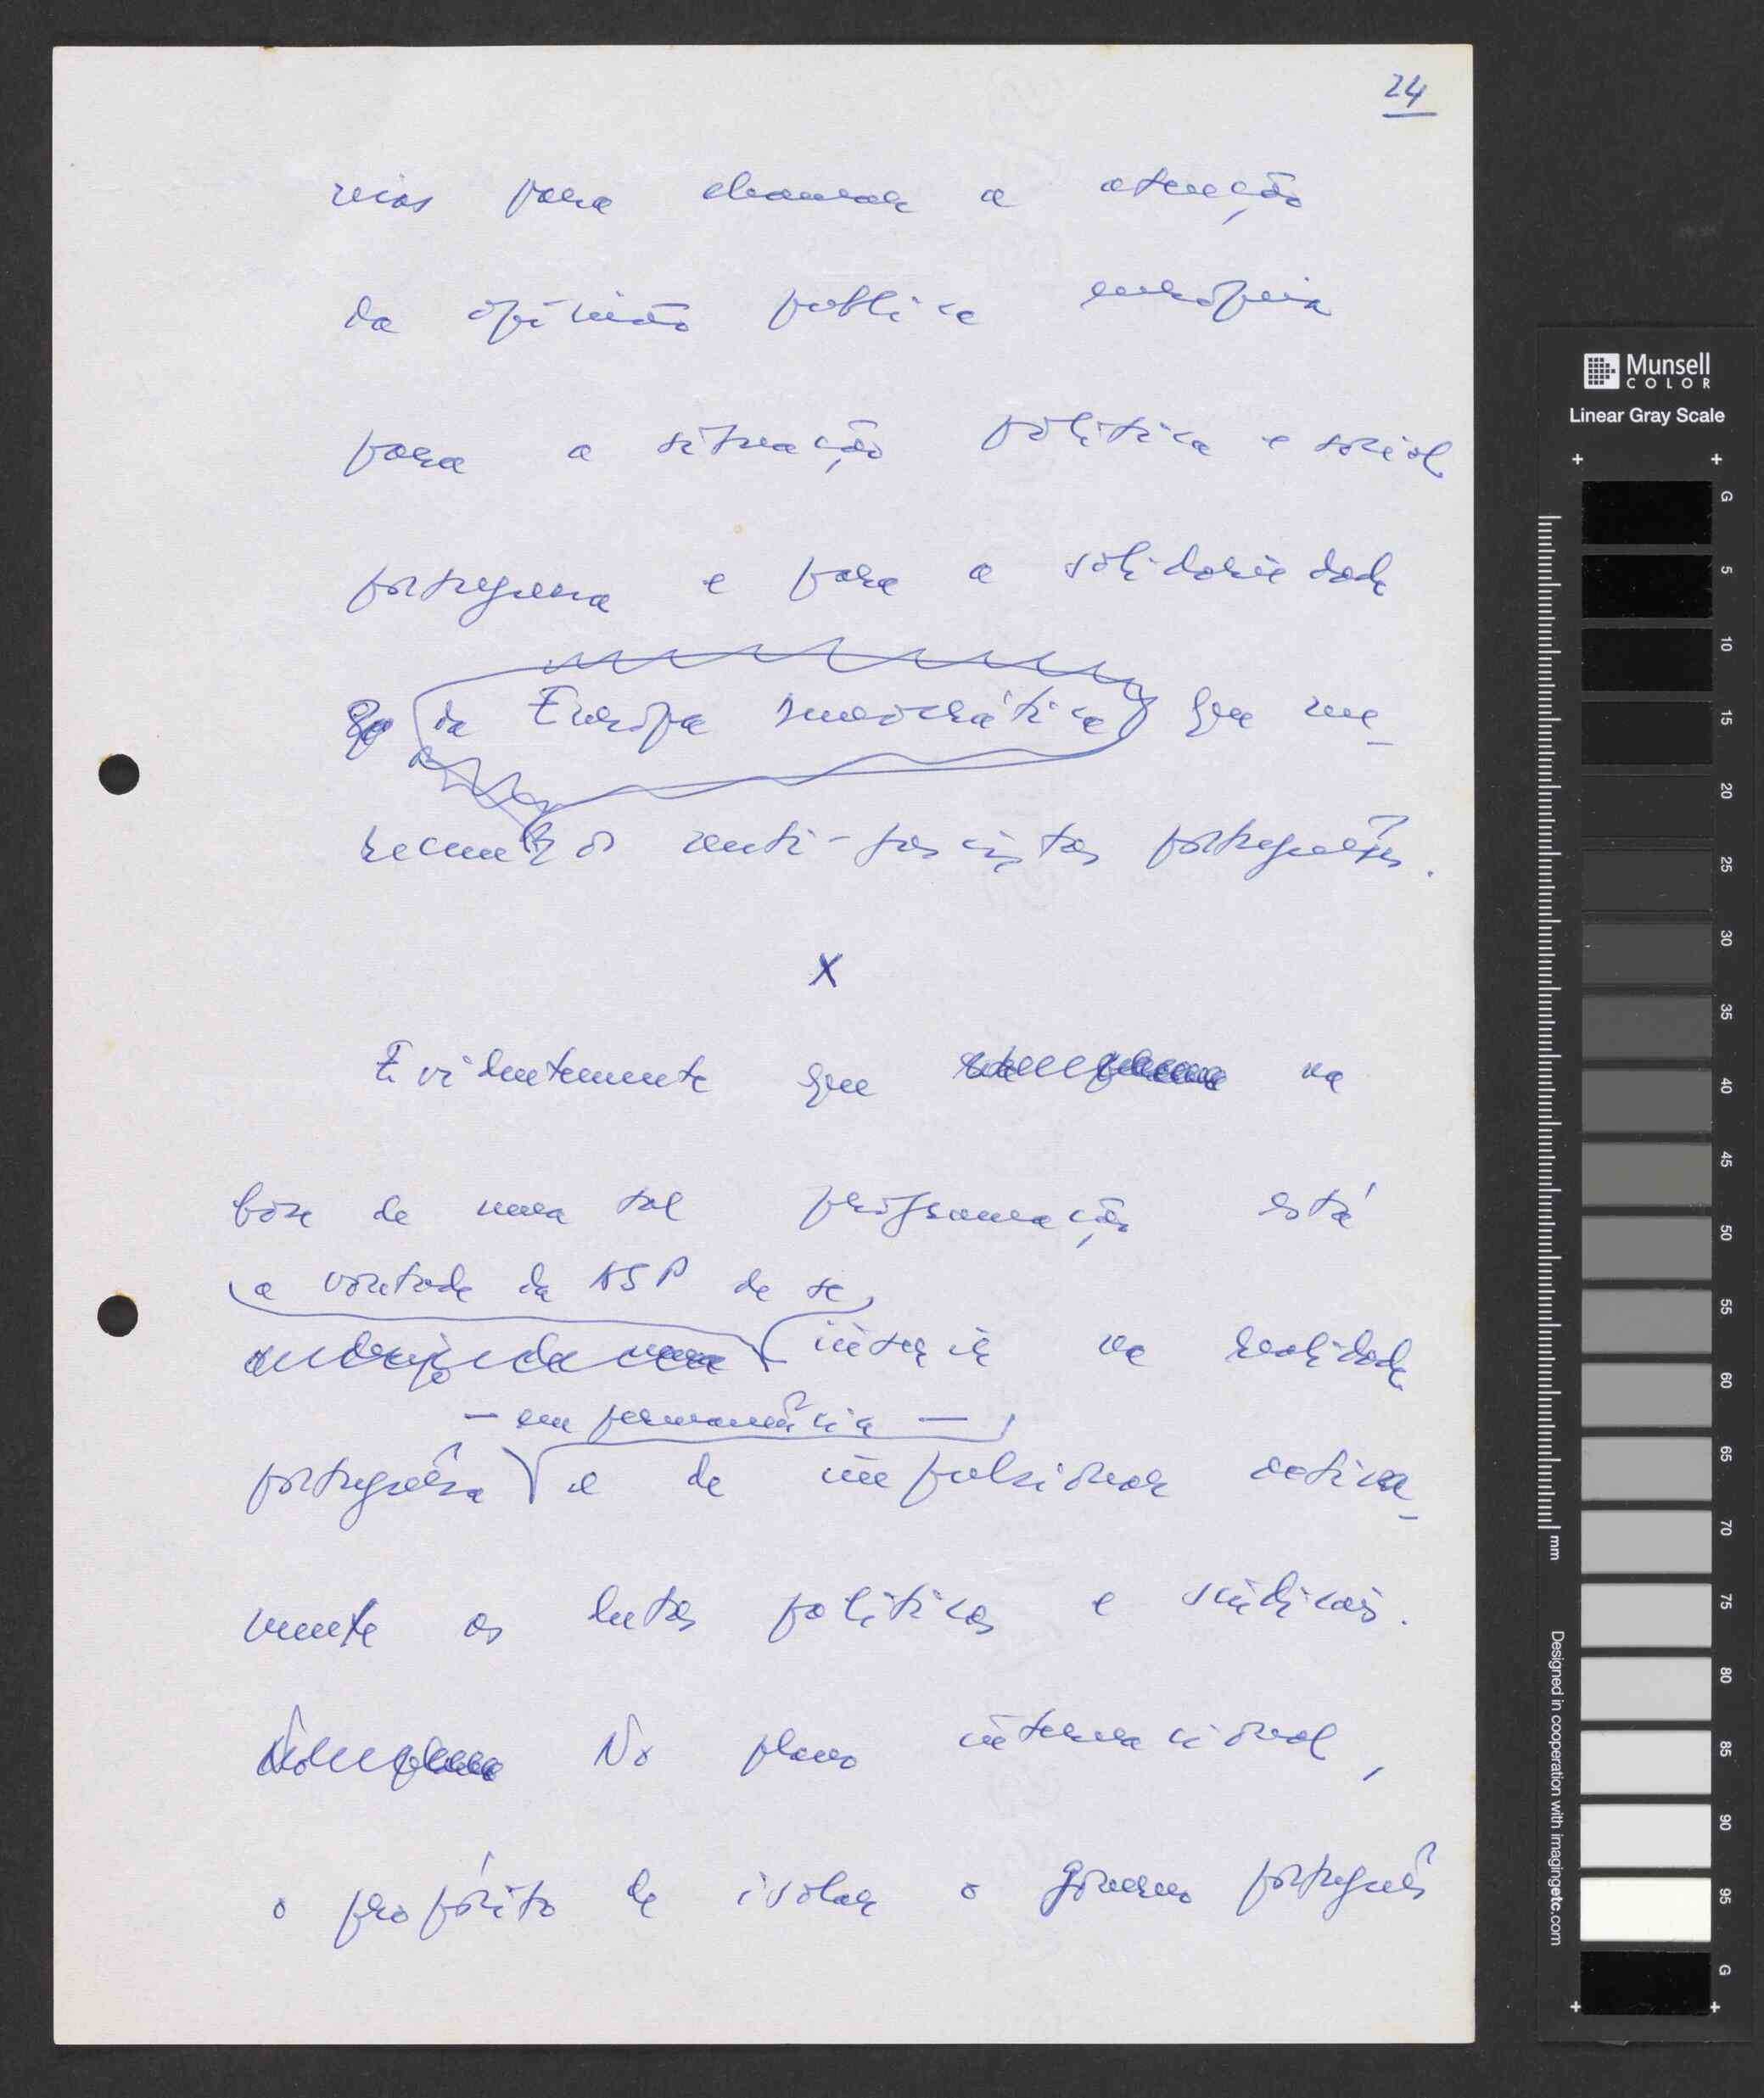 24
rios para chamar a atenção
da opinião publica europeia
para a situação politica e social
portuguesa e para a solidariedade
da Europa democrática que me-
recem os anti-fascistas portuguêses.
X
Evidentemente que na
base de uma tal programação está
a vontade da ASP de se
inserir na realidade
— em permanência —
portuguêsa e de impulsionar activa-
mente as lutas politicas e sindicais.
No plano internacional,
o propósito de isolar o govêrno português
Munsell
COLOR
Linear Gray Scale
G
5
10
15
20
25
30
35
40
45
50
55
60
65
70
75
80
85
90
95
G
mm
Designed in cooperation with imagingetc.com